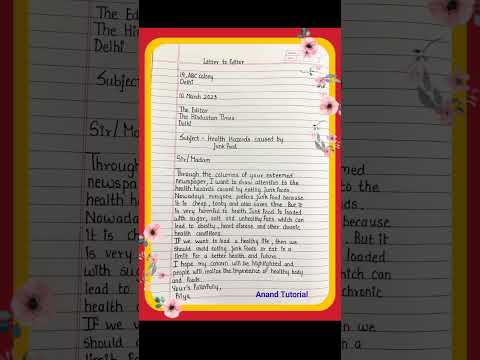 Letter to Editor
19, ABC colony
Delhi
10 March 2023
The Editor
The Hindustan Times
Delhi
Subject - Health Hazards caused by
Junk Food.
Sir/Madam
Through the columns of your esteemed
newspaper, I want to draw attention to the
health hazards caused by eating junk foods.
Nowadays everyone prefers junk food because
it is cheap, tasty and also saves time. But it
is very harmful to health. Junk food is loaded
with sugar, salt and unhealthy fats which can
lead to obesity, heart disease and other chronic
health conditions.
IF we want to lead a healthy life, then we
should avoid eating junk foods or eat in a
limit for a better health and future.
I hope my concern will be highlighted and
people will realise the importance of healthy body
and foods.
Your's Faithfully,
Priya
Anand Tutorial